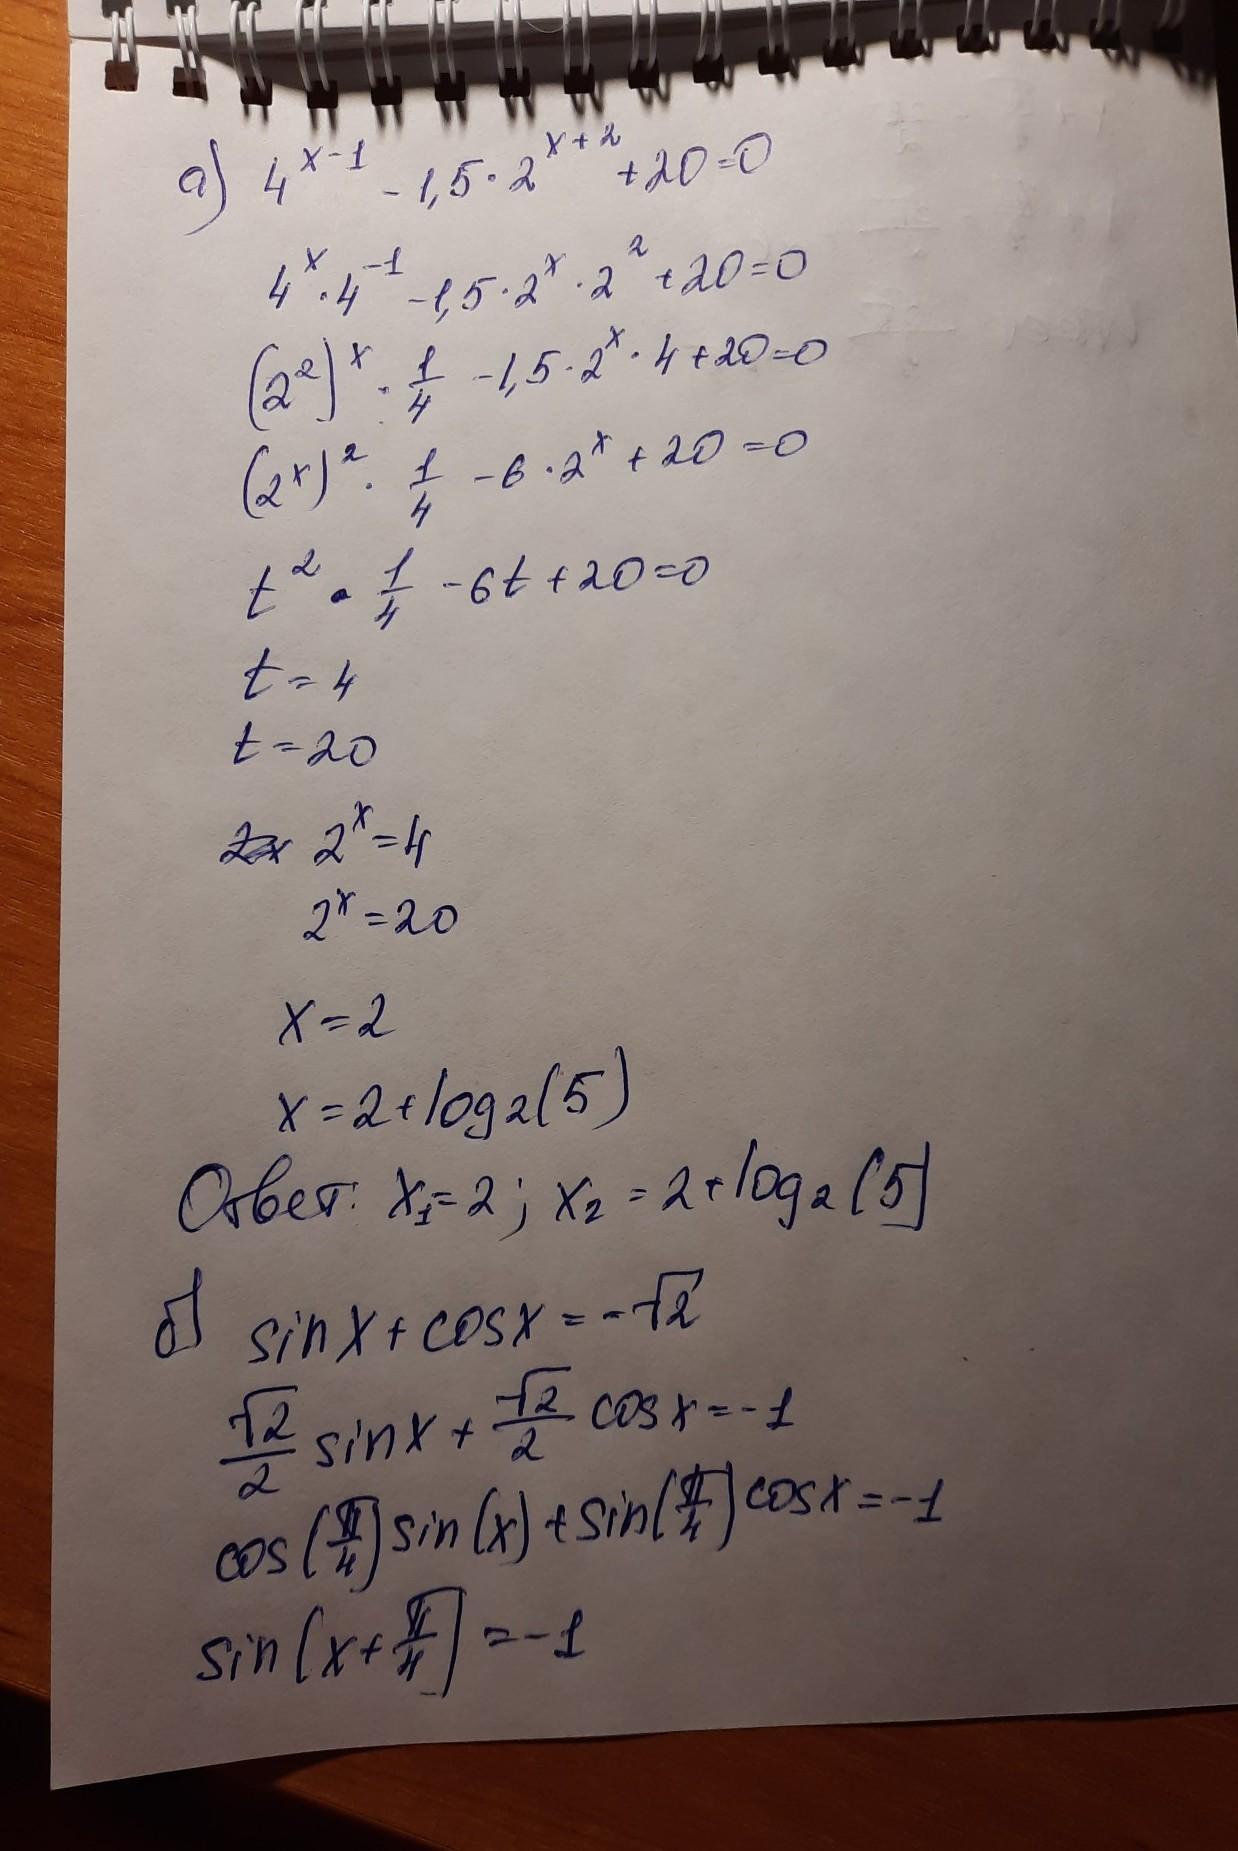 а) 4^{x-1} - 1,5 · 2^{x+2} + 20 = 0
4^x · 4^{-1} - 1,5 · 2^x · 2^2 + 20 = 0
(2^2)^x · 1/4 - 1,5 · 2^x · 4 + 20 = 0
(2^x)^2 · 1/4 - 6 · 2^x + 20 = 0
t^2 · 1/4 - 6t + 20 = 0
t = 4
t = 20
2^x = 4
2^x = 20
x = 2
x = 2 + log_2(5)
Ответ: x_1 = 2; x_2 = 2 + log_2(5)
б) sin x + cos x = -√2
√2/2 sin x + √2/2 cos x = -1
cos(π/4) sin(x) + sin(π/4) cos x = -1
sin(x + π/4) = -1